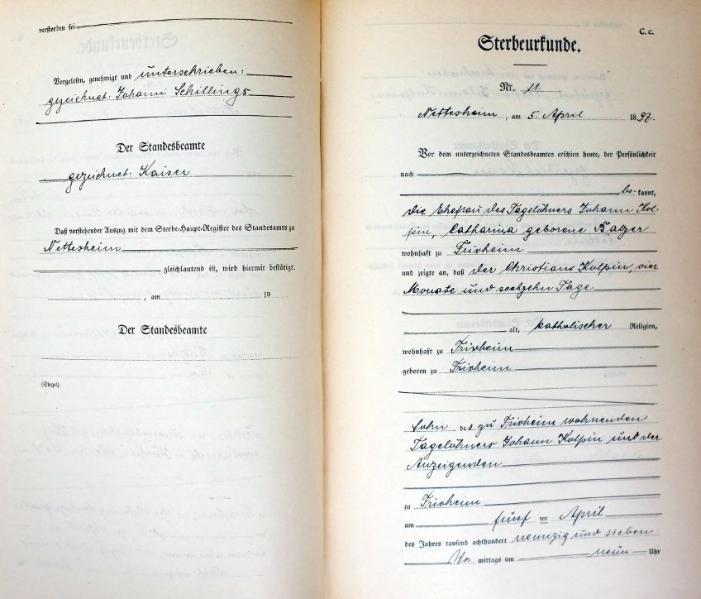 verstorben sei
Vorgelesen, genehmigt und unterschrieben:
gezeichnet: Johann Schillings
Der Standesbeamte
gezeichnet: Kaiser
Daß vorstehender Auszug mit dem Sterbe-Haupt-Register des Standesamts zu
Nettesheim
gleichlautend ist, wird hiermit bestätigt.
, am 19
Der Standesbeamte
(Siegel)
C. c.
Sterbeurkunde.
Nr. 11
Nettesheim, am 5. April 1897.
Vor dem unterzeichneten Standesbeamten erschien heute, der Persönlichkeit
nach
be- kannt,
die Ehefrau des Tagelöhners Johann Kol-
pin, Catharina geborene Balzer
wohnhaft zu Frixheim
und zeigte an, daß der Christians Kolpin, vier
Monate und sechzehn Tage
alt, katholischer Religion,
wohnhaft zu Frixheim
geboren zu Frixheim
Sohn des zu Frixheim wohnenden
Tagelöhners Johann Kolpin und der
Anzeigenden
zu Frixheim
am fünf ten April
des Jahres tausend achthundert neunzig und sieben
Vor mittags um neun Uhr